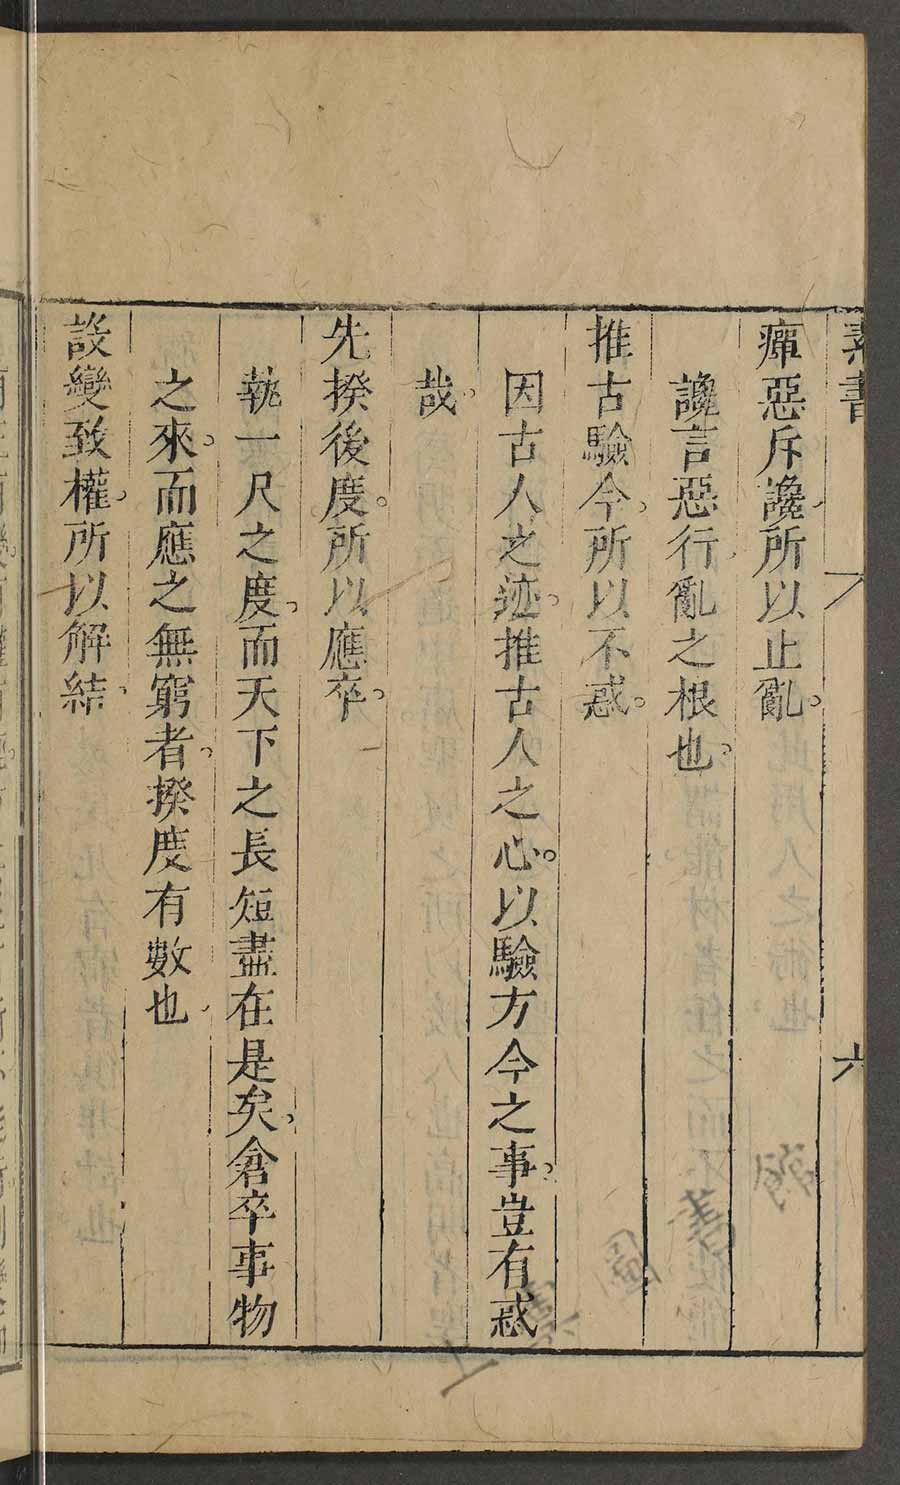 素書
六
癉惡斥讒所以止亂。
讒言惡行亂之根也。
推古驗今。所以不惑。
因古人之迹。推古人之心。以驗方今之事。豈有惑
哉。
先揆後度。所以應卒。
執一尺之度。而天下之長短盡在是矣。倉卒事物
之來。而應之無窮者。揆度有數也
設變致權。所以解結。